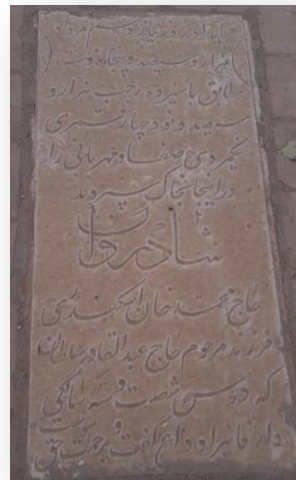 بامداد روز یازدهم مرداد
هزار و سیصد و پنجاه و سه
مطابق با سیزده رجب هزار و
سیصد و نود چهار قمری
یکمردی صفا و مهربانی را
در اینجا بخاک سپردند
شادروان
حاج محمد خان اسکندری
فرزند مرحوم حاج عبدالقادر
که در سن شصت و سه سالگی
دار فانی را وداع گفت و برحمت حق پیوست